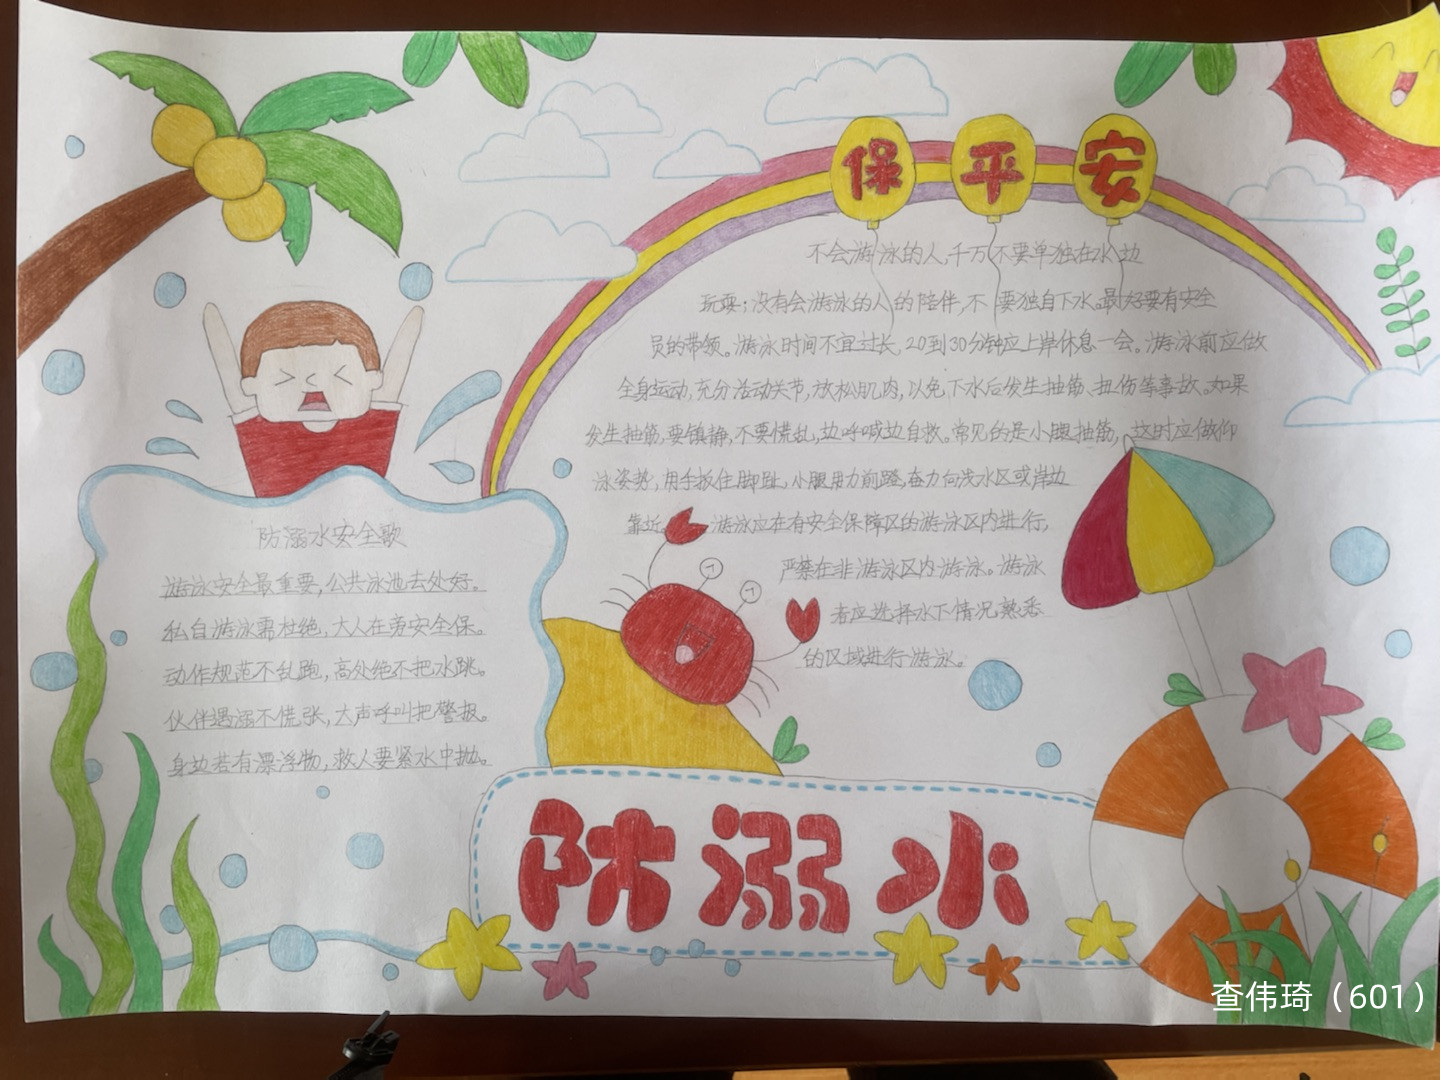 保平安
不会游泳的人,千万不要单独在水边
玩耍;没有会游泳的人的陪伴,不要独自下水。最好要有安全
员的带领。游泳时间不宜过长,20到30分钟应上岸休息一会。游泳前应做
全身运动,充分活动关节,放松肌肉,以免下水后发生抽筋、扭伤等事故。如果
发生抽筋,要镇静,不要慌乱,边呼喊边自救。常见的是小腿抽筋,这时应做仰
泳姿势,用手扳住脚趾,小腿用力前蹬,奋力向浅水区或岸边
靠近。游泳应在有安全保障区的游泳区内进行,
严禁在非游泳区内游泳。游泳
者应选择水下情况熟悉
的区域进行游泳。
防溺水安全歌
游泳安全最重要,公共泳池去处好。
私自游泳需杜绝,大人在旁安全保。
动作规范不乱跑,高处绝不把水跳。
伙伴遇溺不慌张,大声呼叫把警报。
身边若有漂浮物,救人要紧水中抛。
防溺水
查伟琦（601）